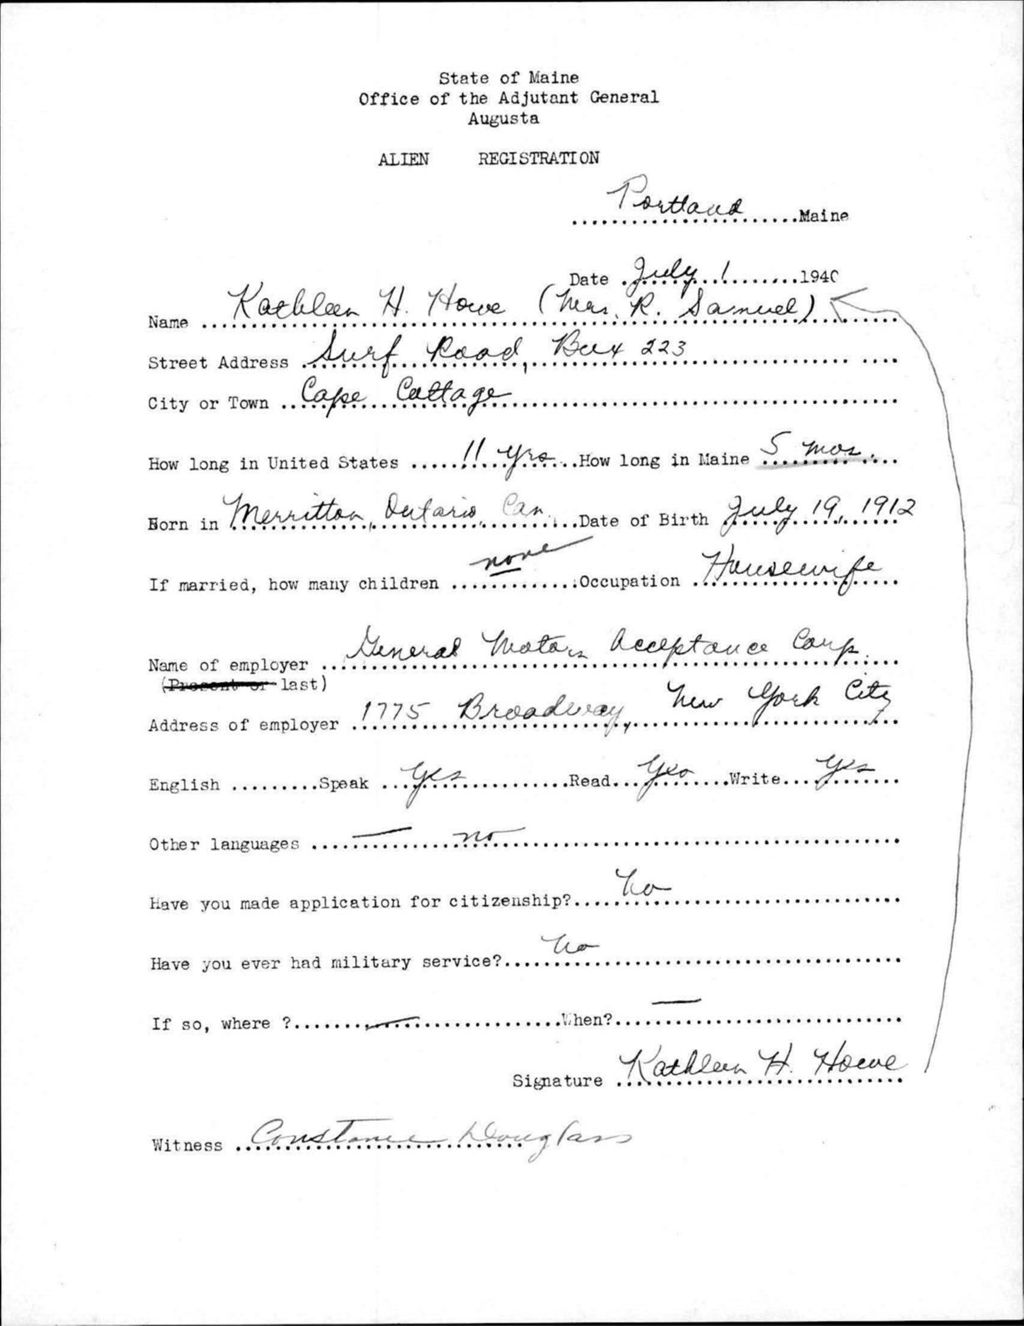 State of Maine
Office of the Adjutant General
Augusta
ALIEN REGISTRATION
Portland Maine
Date July 1 1940
Name Kathleen H. Howe (Mrs. R. Samuel)
Street Address Surf Road, Box 223
City or Town Cape Cottage
How long in United States 11 yrs How long in Maine 5 mos.
Born in Merritton, Ontario, Can. Date of Birth July 19, 1912
If married, how many children none Occupation Housewife
Name of employer General Motors Acceptance Corp.
(Present or last)
Address of employer 1775 Broadway, New York City
English Speak Yes Read Yes Write Yes
Other languages — no
Have you made application for citizenship? No
Have you ever had military service? No
If so, where ? — When? —
Signature Kathleen H. Howe
Witness Constance Douglass